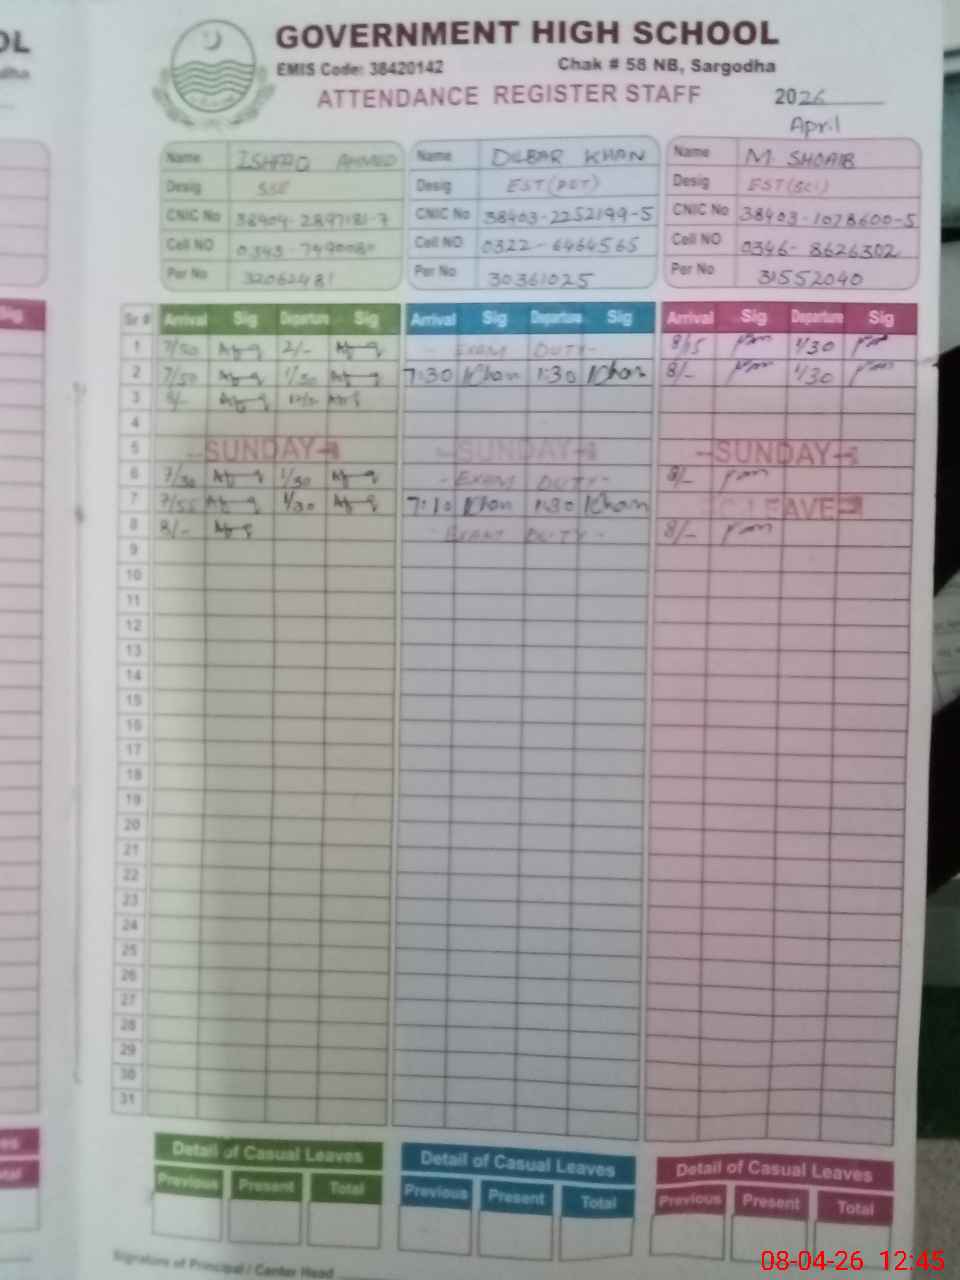 OL
GOVERNMENT HIGH SCHOOL
EMIS Code: 38420142 Chak # 58 NB, Sargodha
ATTENDANCE REGISTER STAFF 2026
April
Name ISHFAQ AHMED Name DILBAR KHAN Name M. SHOAIB
Desig SSE Desig EST(PET) Desig EST(SCI)
CNIC No 38404-2897181-7 CNIC No 38403-2252199-5 CNIC No 38403-1078600-5
Cell NO Cell NO 0322-6464565 Cell NO 0346-8626302
Per No 32062481 Per No 30361025 Per No 31552040
Sig Sr # Arrival Sig Departure Sig Arrival Sig Departure Sig Arrival Sig Departure Sig
1 7/50 2/- - EXAM DUTY- 8/15 1/30
2 7/50 1/30 7:30 Khan 1:30 Khan 8/- 1/30
3 8/-
4
5 -SUNDAY- -SUNDAY- -SUNDAY-
6 7/50 1/30 -EXAM DUTY- 8/-
7 7/55 1/30 7:10 Khan 1:30 Khan LEAVE
8 8/- - EXAM DUTY- 8/-
9
10
11
12
13
14
15
16
17
18
19
20
21
22
23
24
25
26
27
28
29
30
31
Detail of Casual Leaves Detail of Casual Leaves Detail of Casual Leaves
Previous Present Total Previous Present Total Previous Present Total
Signature of Principal / Center Head
08-04-26 12:45